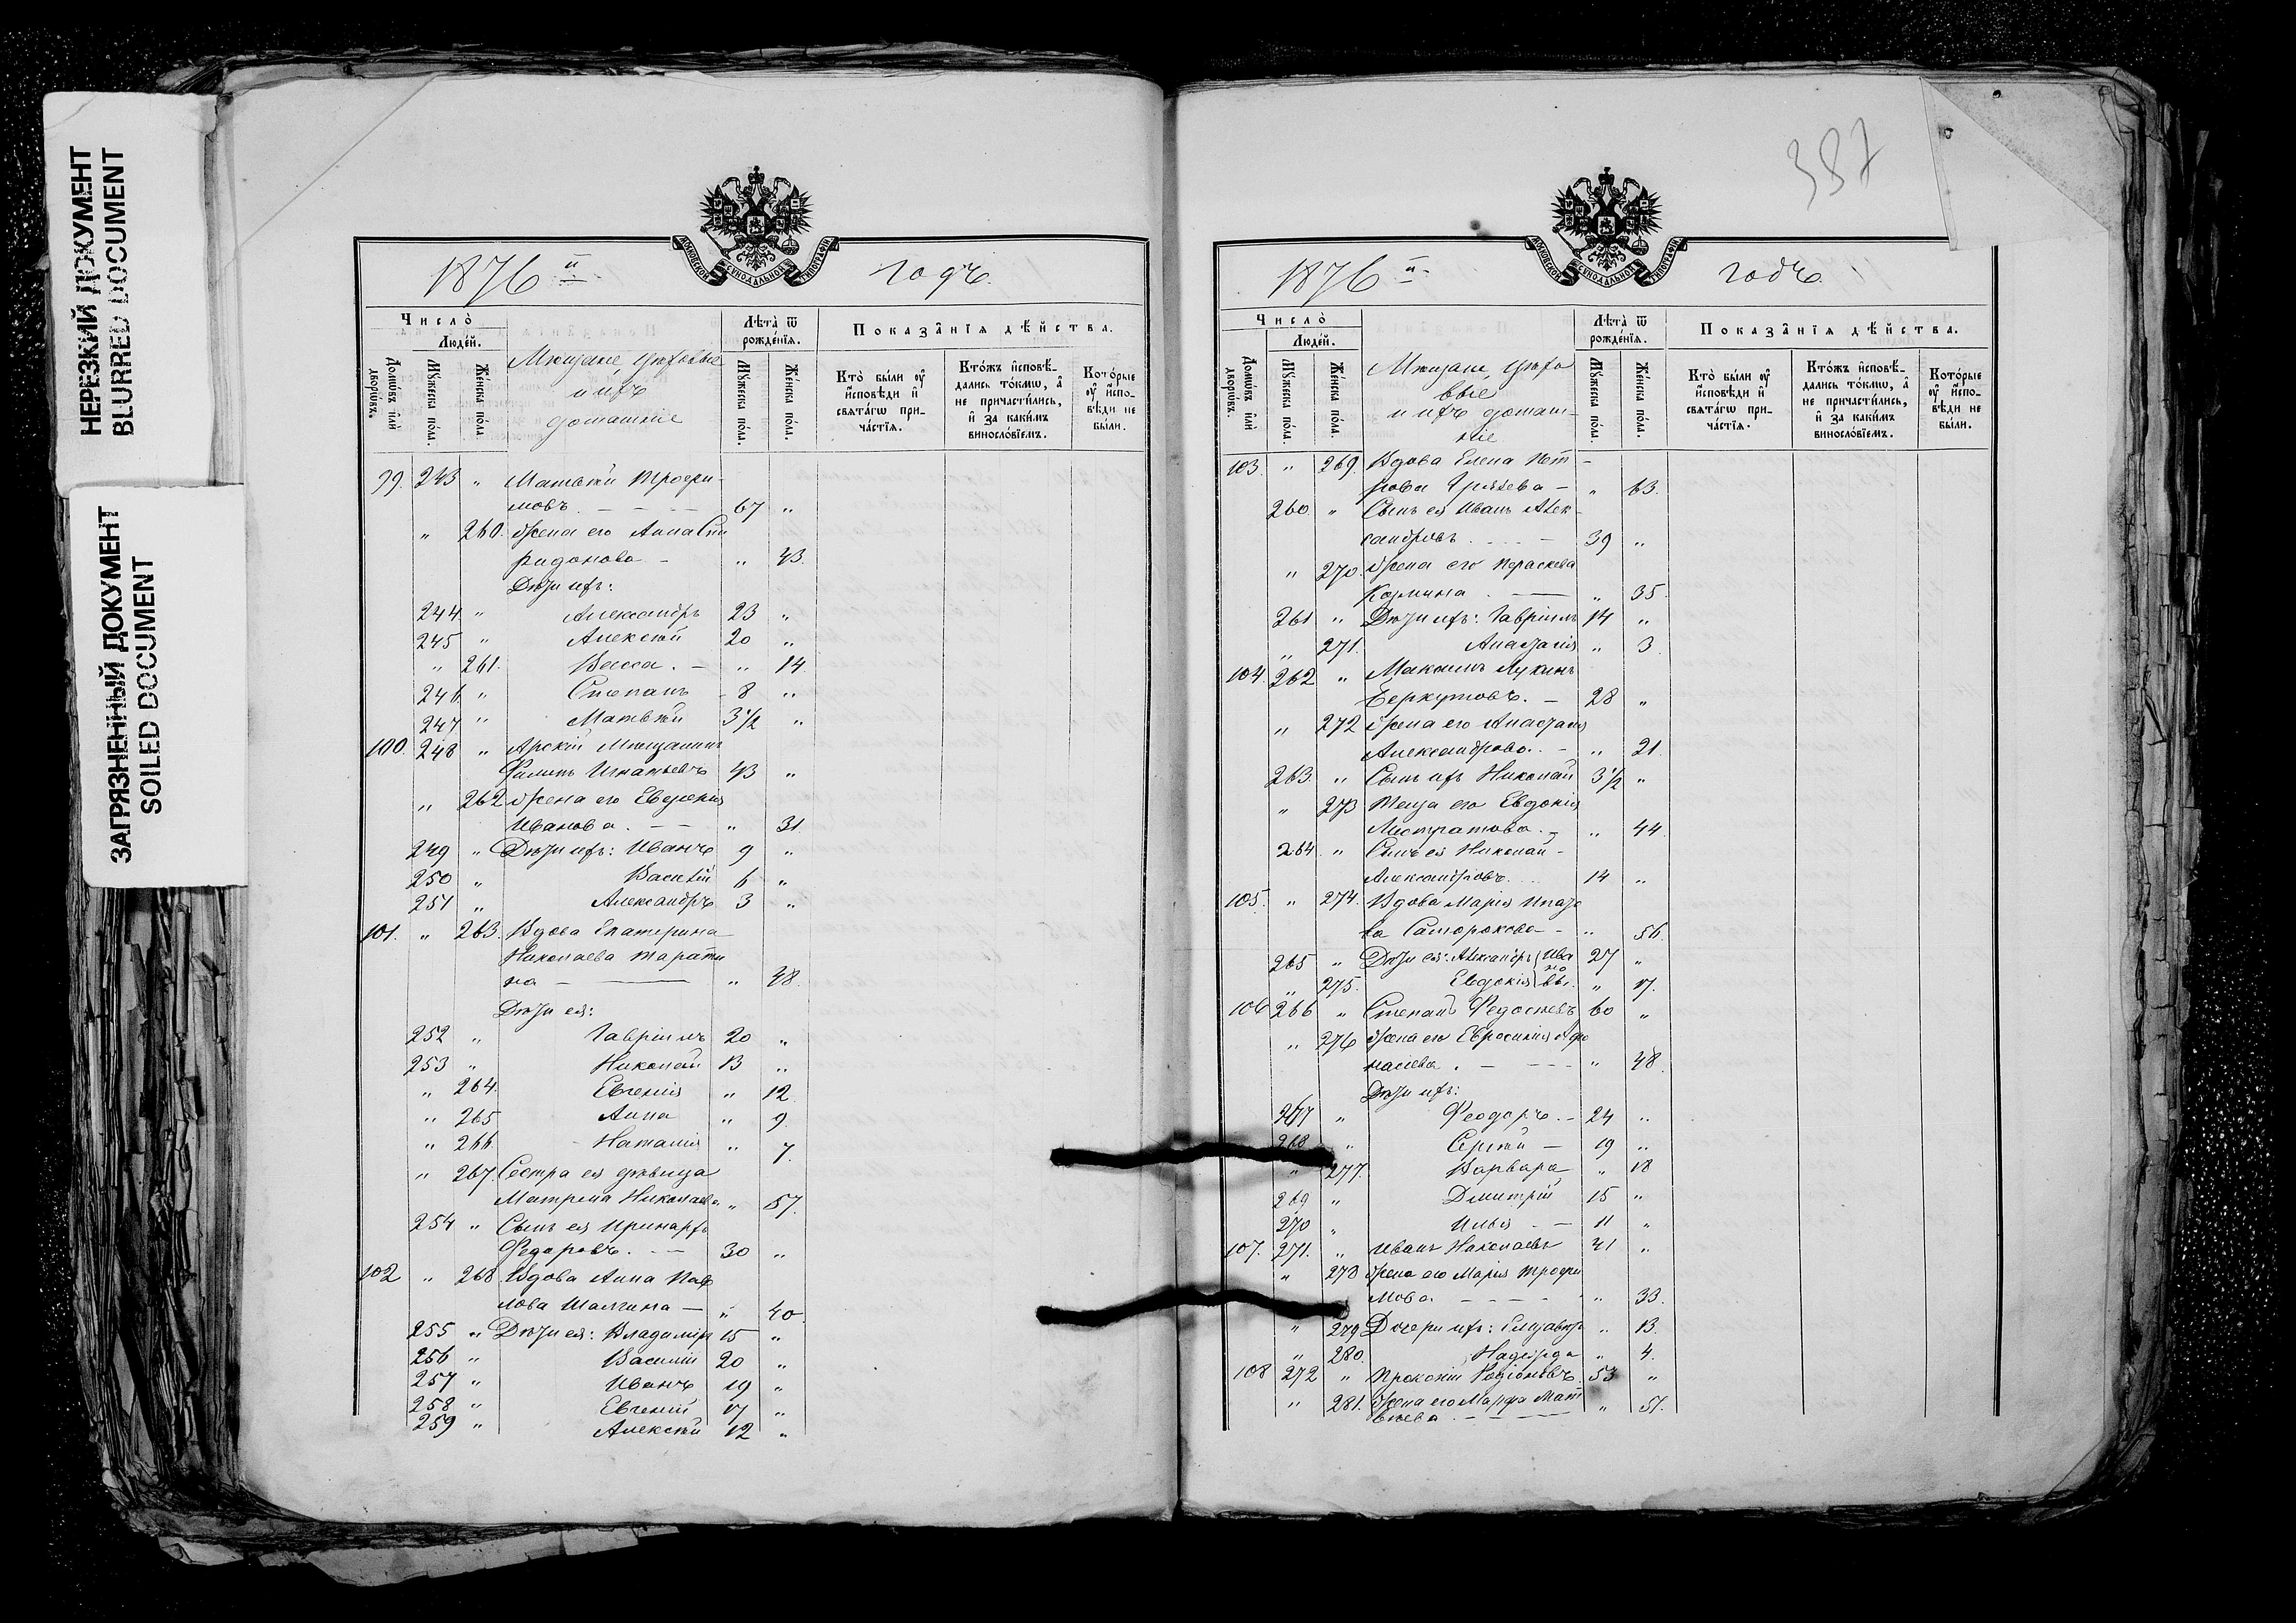 НЕРЕЗКИЙ ДОКУМЕНТ
BLURRED DOCUMENT
ЗАГРЯЗНЕННЫЙ ДОКУМЕНТ
SOILED DOCUMENT
МОСКОВСКОЙ СУНОДАЛЬНОЙ ТИПОГРАФІИ
1876й годъ.
Число̀
Людéй.
Домѡ́въ и҆лѝ дворѡ́въ.
Мꙋ́жеска по́ла.
Же́нска по́ла.
Мѣщане, цѣховые
и ихъ
домашніе
Лѣ́та ѿ рожде́нїѧ.
Мꙋ́жеска по́ла.
Же́нска по́ла.
Показа̂нїѧ дѣ́йства.
Кто̀ бы́ли ᲂу҆ и҆сповѣ́ди и҆ свѧта́гѡ причáстїѧ.
Кто́жъ и҆сповѣ́дались то́кмѡ, а҆ не причасти́лись, и҆ за каки́мъ винослóвїемъ.
Кото́рые ᲂу҆ и҆сповѣ́ди не бы́ли.
99. 243 " Матвѣй Трофи-
мовъ. 67 "
" 260. Жена его Анна Спи
ридонова - " 43.
Дѣти ихъ:
244 " Александръ 23 "
245 " Алексѣй 20 "
" 261. Васса. - " 14
246 " Степанъ 8 "
247 " Матвѣй 3 1/2 "
100. 248 " Арскій Мѣщанинъ
Филипъ Игнатьевъ 43 "
" 262 Жена его Евдокія
Иванова. - " 31.
249 " Дѣти ихъ: Иванъ 9 "
250 " Василій 6 "
251 " Александръ 3 "
101. " 263. Вдова Екатерина
Николаева
на - " 48.
Дѣти ея:
252 " Гавріилъ 20 "
253 " Николай 13 "
" 264. Евгенія " 12
" 265 Анна " 9.
" 266 Наталія " 7.
" 267. Сестра ея дѣвица
Матрена Николаева " 57.
254 " Сынъ ея Иринархъ
Федоровъ. - 30 "
102 " 268 Вдова Анна Пав
лова Шалгина - " 40
255 " Дѣти ея: Владиміръ 15 "
256 " Василій 20 "
257 " Иванъ 19 "
258 " Евгеній 17 "
259 " Алексѣй 12 "
387
МОСКОВСКОЙ СУНОДАЛЬНОЙ ТИПОГРАФІИ
1876й годъ.
Число̀
Людéй.
Домѡ́въ и҆лѝ дворѡ́въ.
Мꙋ́жеска по́ла.
Же́нска по́ла.
Мѣщане, цѣхо
вые
и ихъ домаш-
ніе
Лѣ́та ѿ рожде́нїѧ.
Мꙋ́жеска по́ла.
Же́нска по́ла.
Показа̂нїѧ дѣ́йства.
Кто̀ бы́ли ᲂу҆ и҆сповѣ́ди и҆ свѧта́гѡ причáстїѧ.
Кто́жъ и҆сповѣ́дались то́кмѡ, а҆ не причасти́лись, и҆ за каки́мъ винослóвїемъ.
Кото́рые ᲂу҆ и҆сповѣ́ди не бы́ли.
103. " 269. Вдова Елена Пет-
рова - " 63.
260. " Сынъ ея Иванъ Алек-
сандровъ - 39 "
" 270. Жена его Параскева
Козмина - " 35.
261 " Дѣти ихъ: Гавріилъ 14 "
" 271. Анастасія " 3.
104. 262 " Максимъ Лукинъ
Беркутовъ. - 28 "
" 272 Жена его Анастасія
Александрова. - " 21
263. " Сынъ ихъ Николай 3 1/2 "
" 273 Теща его Евдокія
Листратова. - " 44.
264. " Сынъ ея Николай -
Александровъ. 14 "
105. " 274. Вдова Марія Игнать
ва - " 56.
265 " Дѣти ея: Александръ Ива 27 "
но
" 275. Евдокія вы. " 17.
106 266 " Степанъ Федосѣевъ 60 "
" 276 Жена его Евросинія Афо
насіева. - " 48.
Дѣти ихъ:
267 " Феодоръ. - 24 "
268 " Сергѣй - 19 "
" 277. Варвара " 18
269 " Дмитрій 15 "
270 " Илья - 11 "
107. 271. " Иванъ Николаевъ 41 "
" 278 Жена его Марія Трофи
мова - " 33.
" 279 Дочери ихъ: Елизавета " 13.
" 280. Надежда " 4.
108 272 " Прокопій Родіоновъ 53 "
" 281. Жена его Марфа Мат
вѣева - " 51.